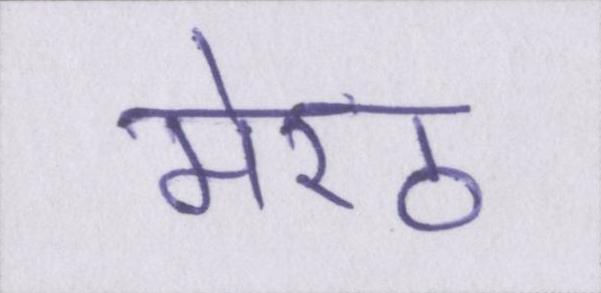 मेरठ